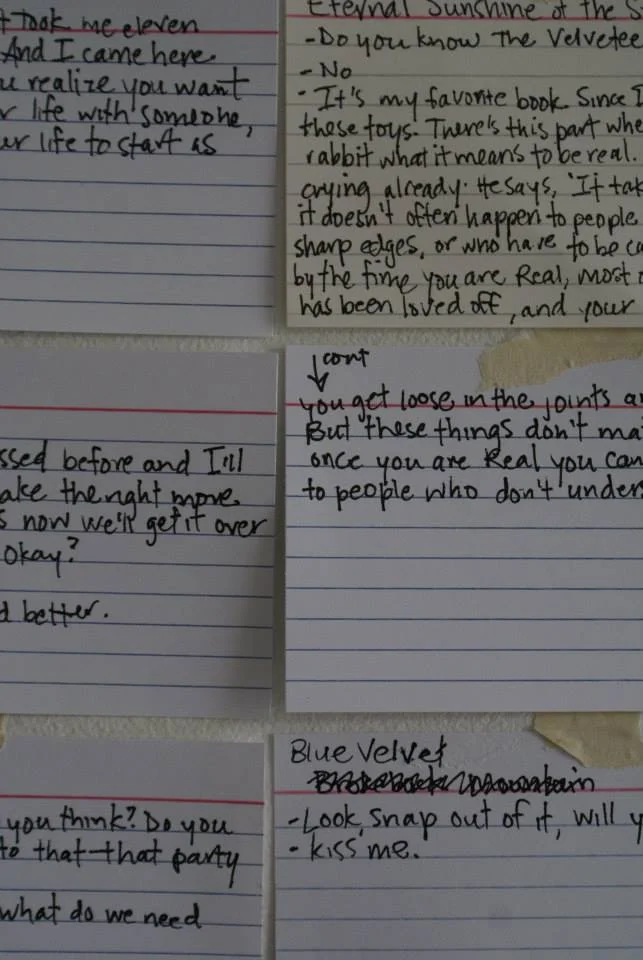 t took me eleven
And I came here
u realize you want
r life with someone,
ur life to start as
Eternal Sunshine of the S
-Do you know The Velvetee
- No
- It's my favorite book. Since I
these toys. There's this part whe
rabbit what it means to be real.
crying already. He says, 'It tak
it doesn't often happen to people
sharp edges, or who have to be ca
by the time you are Real, most
has been loved off, and your
ssed before and I'll
ake the right move.
s now we'll get it over
okay?
d better.
cont
you get loose in the joints an
But these things don't ma
once you are Real you can
to people who don't under
you think? Do you
to that-that party
what do we need
Blue Velvet
-Look, snap out of it, will y
- kiss me.